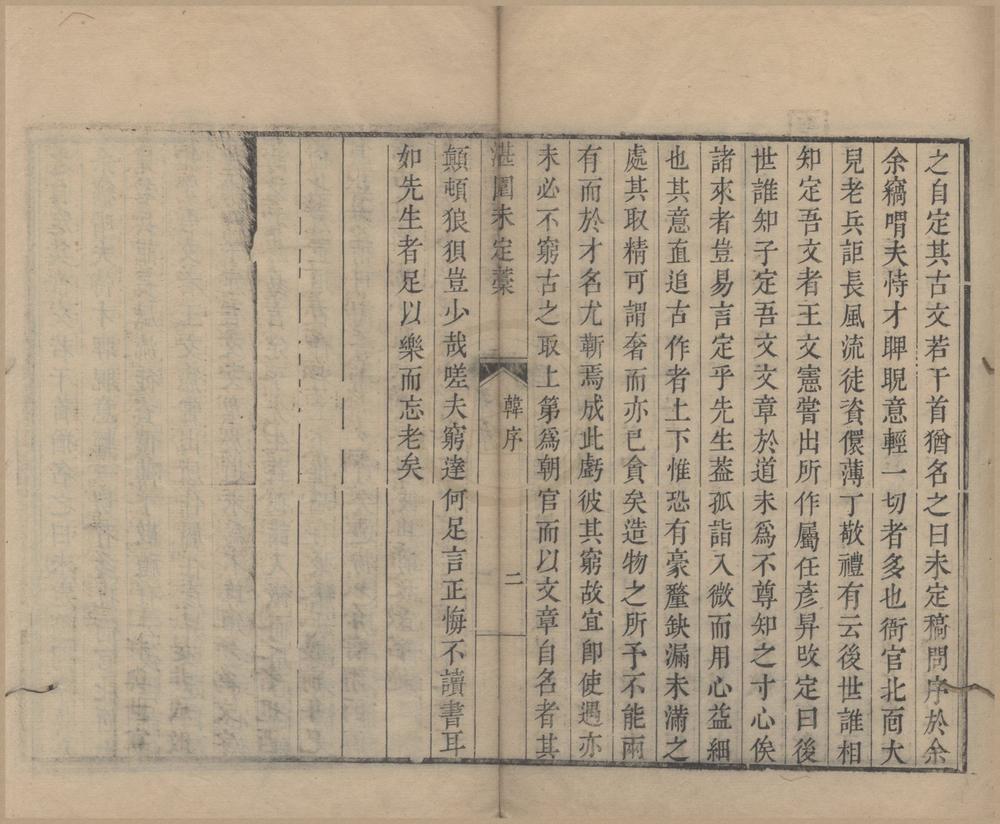 之自定其古文若干首猶名之曰未定稿問序於余
余竊喟夫恃才睥睨意輕一切者多也衙官北面大
兒老兵詎長風流徒資儇薄丁敬禮有云後世誰相
知定吾文者王文憲嘗出所作屬任彥昇攺定曰後
世誰知子定吾文文章於道未爲不尊知之寸心俟
諸來者豈易言定乎先生葢孤詣入微而用心益細
也其意直追古作者上下惟恐有豪釐鈌漏未滿之
處其取精可謂奢而亦已貪矣造物之所予不能兩
有而於才名尤靳焉成此虧彼其窮故宜卽使遇亦
未必不窮古之取上第爲朝官而以文章自名者其
湛園未定藁
韓序
二
顛頓狼狽豈少哉嗟夫窮達何足言正悔不讀書耳
如先生者足以樂而忘老矣